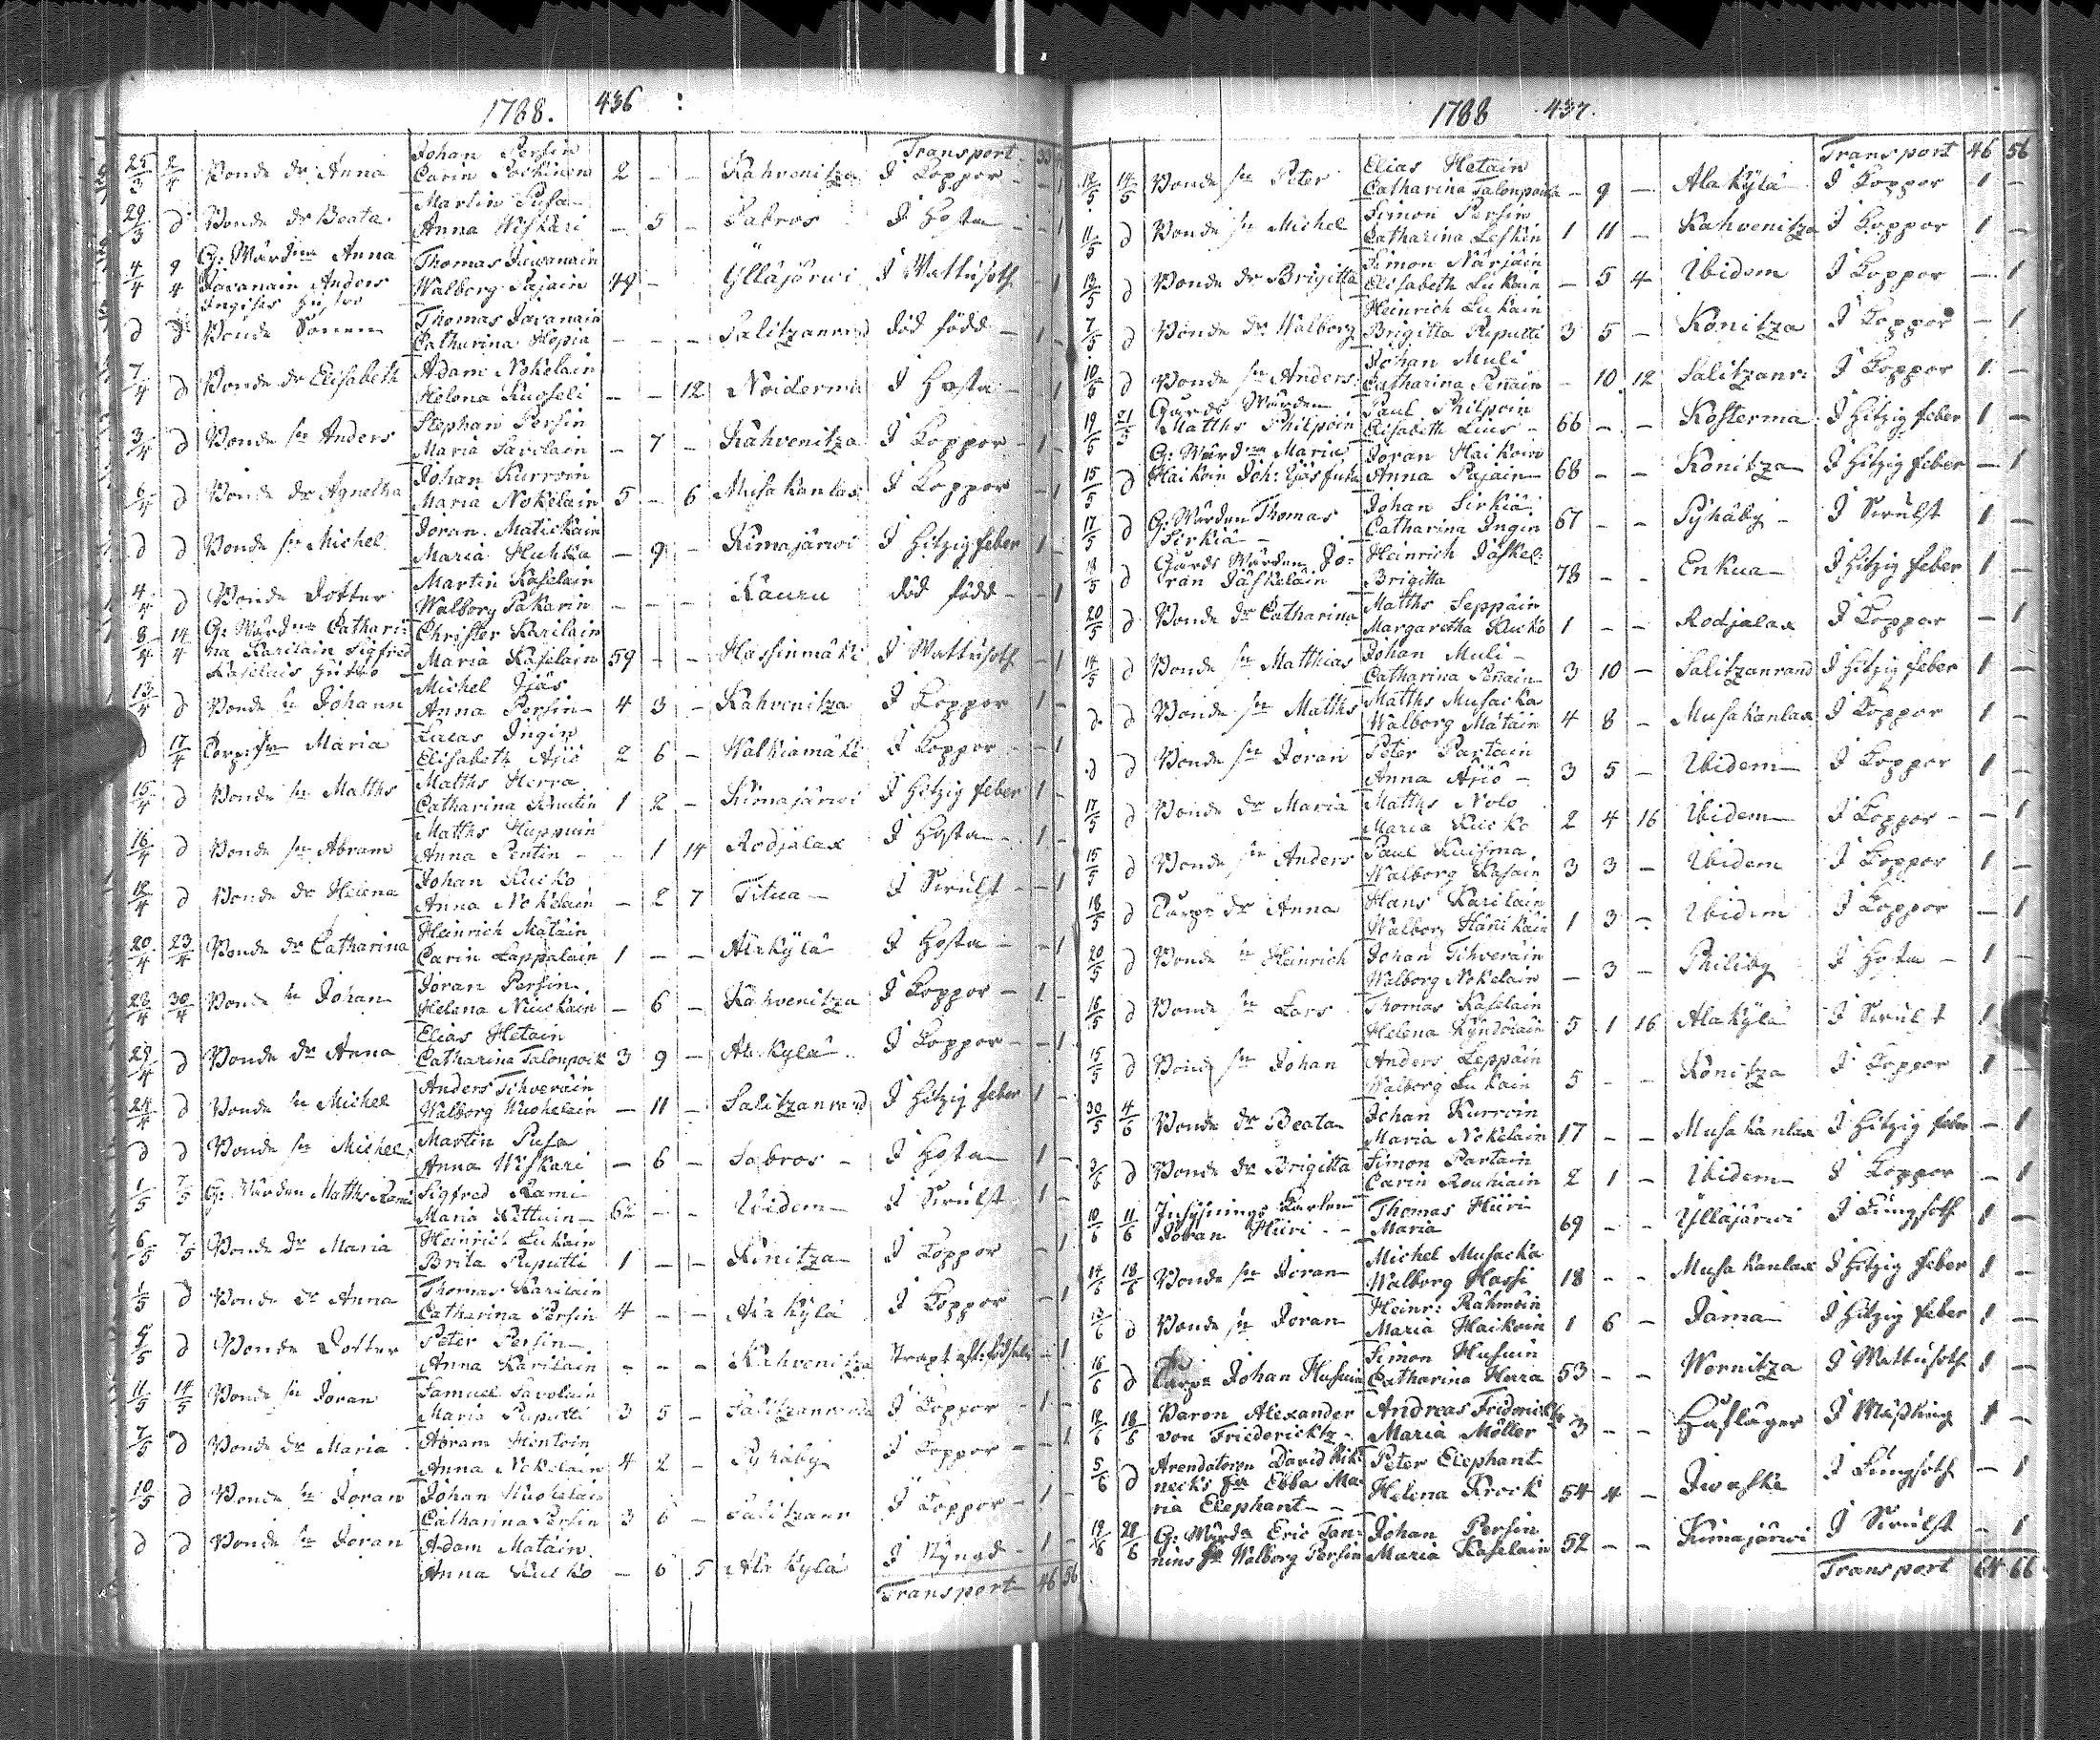 1788. 436 :
Transport
25/3 2/4 Bonde dr Anna Johan Persin Carin Poskinen 2 - - Kahvenitza I Koppor - 1
29/3 d Bonde dr Beata Martin Pusa Anna Wiskari - 5 - Sabros I Hosta - 1
4/4 9/4 G: Wärdna Anna Javanain Anders Ingises Hustro Thomas Juvanain Walborg Pajain 49 - Ylläjärwi I Wattusoth - 1
d d Bonde Sonen Thomas Javanain Catharina Hopia - - - Salitzanrand död född - 1 -
7/4 d Bonde dr Elisabeth Adam Nokelain Helena Kuoseli - - 12 Noiderma I Hosta - 1
3/4 d Bonde sn Anders Stephan Persin Maria Savolain - 7 - Kahvenitza I Koppor - 1 -
6/4 d Bonde dr Agnetha Johan Kurroin Maria Nokelain 5 - 6 Musakanlax I Koppor - 1
d d Bonde sn Michel Joran Matickain Maria Huhka - 9 - Kimajärwi I Hitzig feber 1 -
4/4 d Bonde Dotter Martin Kaselain Walborg Pakarin - - - Kauru död född - 1
8/4 14/4 G: Wärdna Cathari- na Karilain Sigfred Kaselais Hustro Christer Karilain Maria Kaselain 59 - - Hassinmäki I Wattusoth - 1
13/4 d Bonde sn Johann Michel Ijäs Anna Persin 4 3 - Kahvenitza I Koppor 1 -
17/4 Maria Lucas Ingin Elisabeth Ajiö 2 6 - Walkiamäki I Koppor - 1
15/4 d Bonde sn Matths Matths Herra Catharina 1 2 - Kimajärwi I Hitzig feber 1 -
16/4 d Bonde sn Abram Matths Huppuin Anna Pentin - 1 14 Rodjalax I Hosta - 1 -
12/4 d Bonde dr Helena Johan Kucko Anna Nokelain - 2 7 Titua I Swulst - 1
20/4 23/4 Bonde dr Catharina Heinrich Matain Carin Lappalain 1 - - Alakylä I Hosta - 1
28/4 30/4 Bonde sn Johan Joran Persin Helena Niuskain - 6 - Kahvenitza I Koppor - 1 -
29/4 d Bonde dr Anna Elias Hetain Catharina Talonpoik 3 9 - Alakylä I Koppor - 1
24/4 d Bonde sn Michel Anders Tihverain Walborg Nuokelain - 11 - Salitzanrand I Hitzig feber 1 -
d d Bonde sn Michel Martin Pusa Anna Wiskari - 6 - Sabros - I Hosta 1 -
1/5 7/5 G: Wärden Matths Rami Sigfred Rami Maria Kittain 62 - - Ibidem I Swulst 1 -
6/5 7/5 Bonde dr Maria Heinrich Lukain Brita Reputti 1 - - Konitza I Koppor - 1
1/5 d Bonde dr Anna Thomas Karilain Catharina Persin 4 - - Ala kylä I Koppor - 1
5/5 d Bonde Dotter Peter Persin Anna Karilain - - - Kahvenitza - 1
11/5 14/5 Bonde sn Joran Samuel Savolain Maria Reputti 3 5 - Salitzanrand I Koppor - 1 -
7/5 d Bonde dr Maria Abram Hintoin Anna Nokelain 4 2 - Pyhäby I Koppor - 1
10/5 d Bonde sn Joran Johan Nuokelain Catharina Persin 3 6 - Salitzanr I Koppor - 1 -
d d Bonde sn Joran Adam Matain Anna Kucko - 6 5 Ala kylä I Styngd - 1 -
Transport 46 56
1788 437.
Transport 46 56
12/5 14/5 Bonde sn Peter Elias Hetain Catharina Talonpoika - 9 - Alakylä I Koppor 1 -
11/5 d Bonde sn Michel Simon Persin Catharina Leskin 1 11 - Kahvenitza I Koppor 1 -
13/5 d Bonde dr Brigitta Simon Närjäin Elisabeth Lukain - 5 4 Ibidem I Koppor - 1
7/5 d Bonde dr Walborg Heinrich Lukain Brigitta Reputti 3 5 - Konitza I Koppor - 1
10/5 d Bonde sn Anders Johan Muli Catharina Penain - 10 12 Salitzanr: I Koppor 1 -
19/5 21/5 Gårds Wärden Matths Philpoin Paul Philpoin Elisabeth Lius - 66 - - Kosterma I Hitzig feber 1 -
15/5 d G: Wärdna Maria Haikoin Joh: Ijäs Joran Haikoin Anna Pajain 68 - - Konitza I Hitzig feber - 1
17/5 d G: Wärden Thomas Sirkia Johan Sirkiä Catharina Ingin 67 - - Pyhäby - I Swulst 1 -
18/5 d Gårds Wärden Jo- ran Jäskeläin Heinrich Jäskel: Brigitta 78 - - Enkua I Hitzig feber 1 -
20/5 d Bonde dr Catharina Matths Seppäin Margaretha Kucko 1 - - Rodjalax I Koppor - 1
14/5 d Bonde sn Matthias Johan Muli - Catharina Penain 3 10 - Salitzanrand I Hitzig feber 1 -
d d Bonde sn Matths Matths Musacka Walborg Matain 4 8 - Musakanlax I Koppor 1 -
d d Bonde sn Joran Peter Partain Anna Ajiö - 3 5 - Ibidem I Koppor 1 -
17/5 d Bonde dr Maria Matths Nolo Maria Kucko 2 4 16 Ibidem I Koppor - - 1
15/5 d Bonde sn Anders Paul Kuisma Walborg Kasain 3 3 - Ibidem I Koppor 1 -
18/5 d dr Anna Hans Karilain Walborg Hänikäin 1 3 - Ibidem I Koppor - 1
20/5 d Bonde sn Heinrich Johan Tihverain Walborg Nokelain - 3 - Philiby I Hosta - 1 -
16/5 d Bonde sn Lars Thomas Kaselain Helena Kyndöläin 5 1 16 Alakylä I Swulst 1
15/5 d Bonde sn Johan Anders Leppäin Walborg Lukain 5 - - Konitza I Koppor 1 -
30/5 4/6 Bonde dr Beata Johan Kurroin Maria Nokelain 17 - - Musakanlax I Hitzig feber - 1
3/6 d Bonde dr Brigitta Simon Partain Carin Rouhiain 2 1 - Ibidem I Koppor - 1
10/6 11/6 Inhysnings Karlen Joran Hiiri - - Thomas Hiiri Maria 69 - - Ylläjärwi I Lungsoth 1 -
14/6 18/6 Bonde sn Joran Michel Musacka Walborg Hassi 18 - - Musakanlax I Hitzig feber 1 -
13/6 d Bonde sn Joran Heinr: Rähmöin Maria Haikoin 1 6 - Jama I Hitzig feber 1 -
16/6 d Johan Husuin Simon Husuin Catharina Herra 53 - - Wornitza I Wattusoth 1 -
12/6 18/6 Baron Alexander von Friedericktz - Andreas Friedericktz Maria Möller 3 - - I Mäßling 1 -
5/6 d Arendatorn David necks fru Ebba Ma- ria Elephant - - Peter Elephant Helena Krook 54 4 - I Lungsoth - 1
19/6 28/6 G: Wärdn Eric Tan- nins Walborg Persin Johan Persin Maria Kaselain 52 - - Kimajärwi I Swulst - 1
Transport 64 66